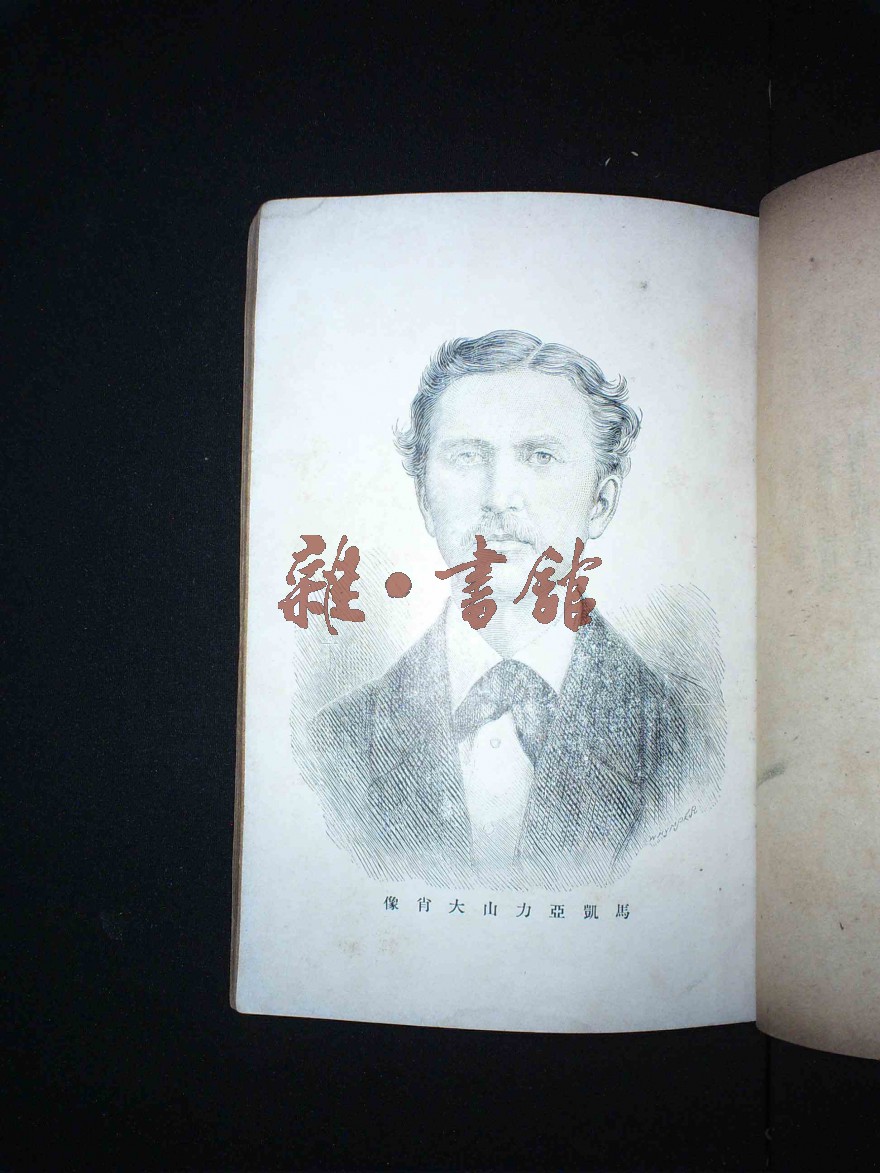 雜·書館
馬凱亞力山大肖像